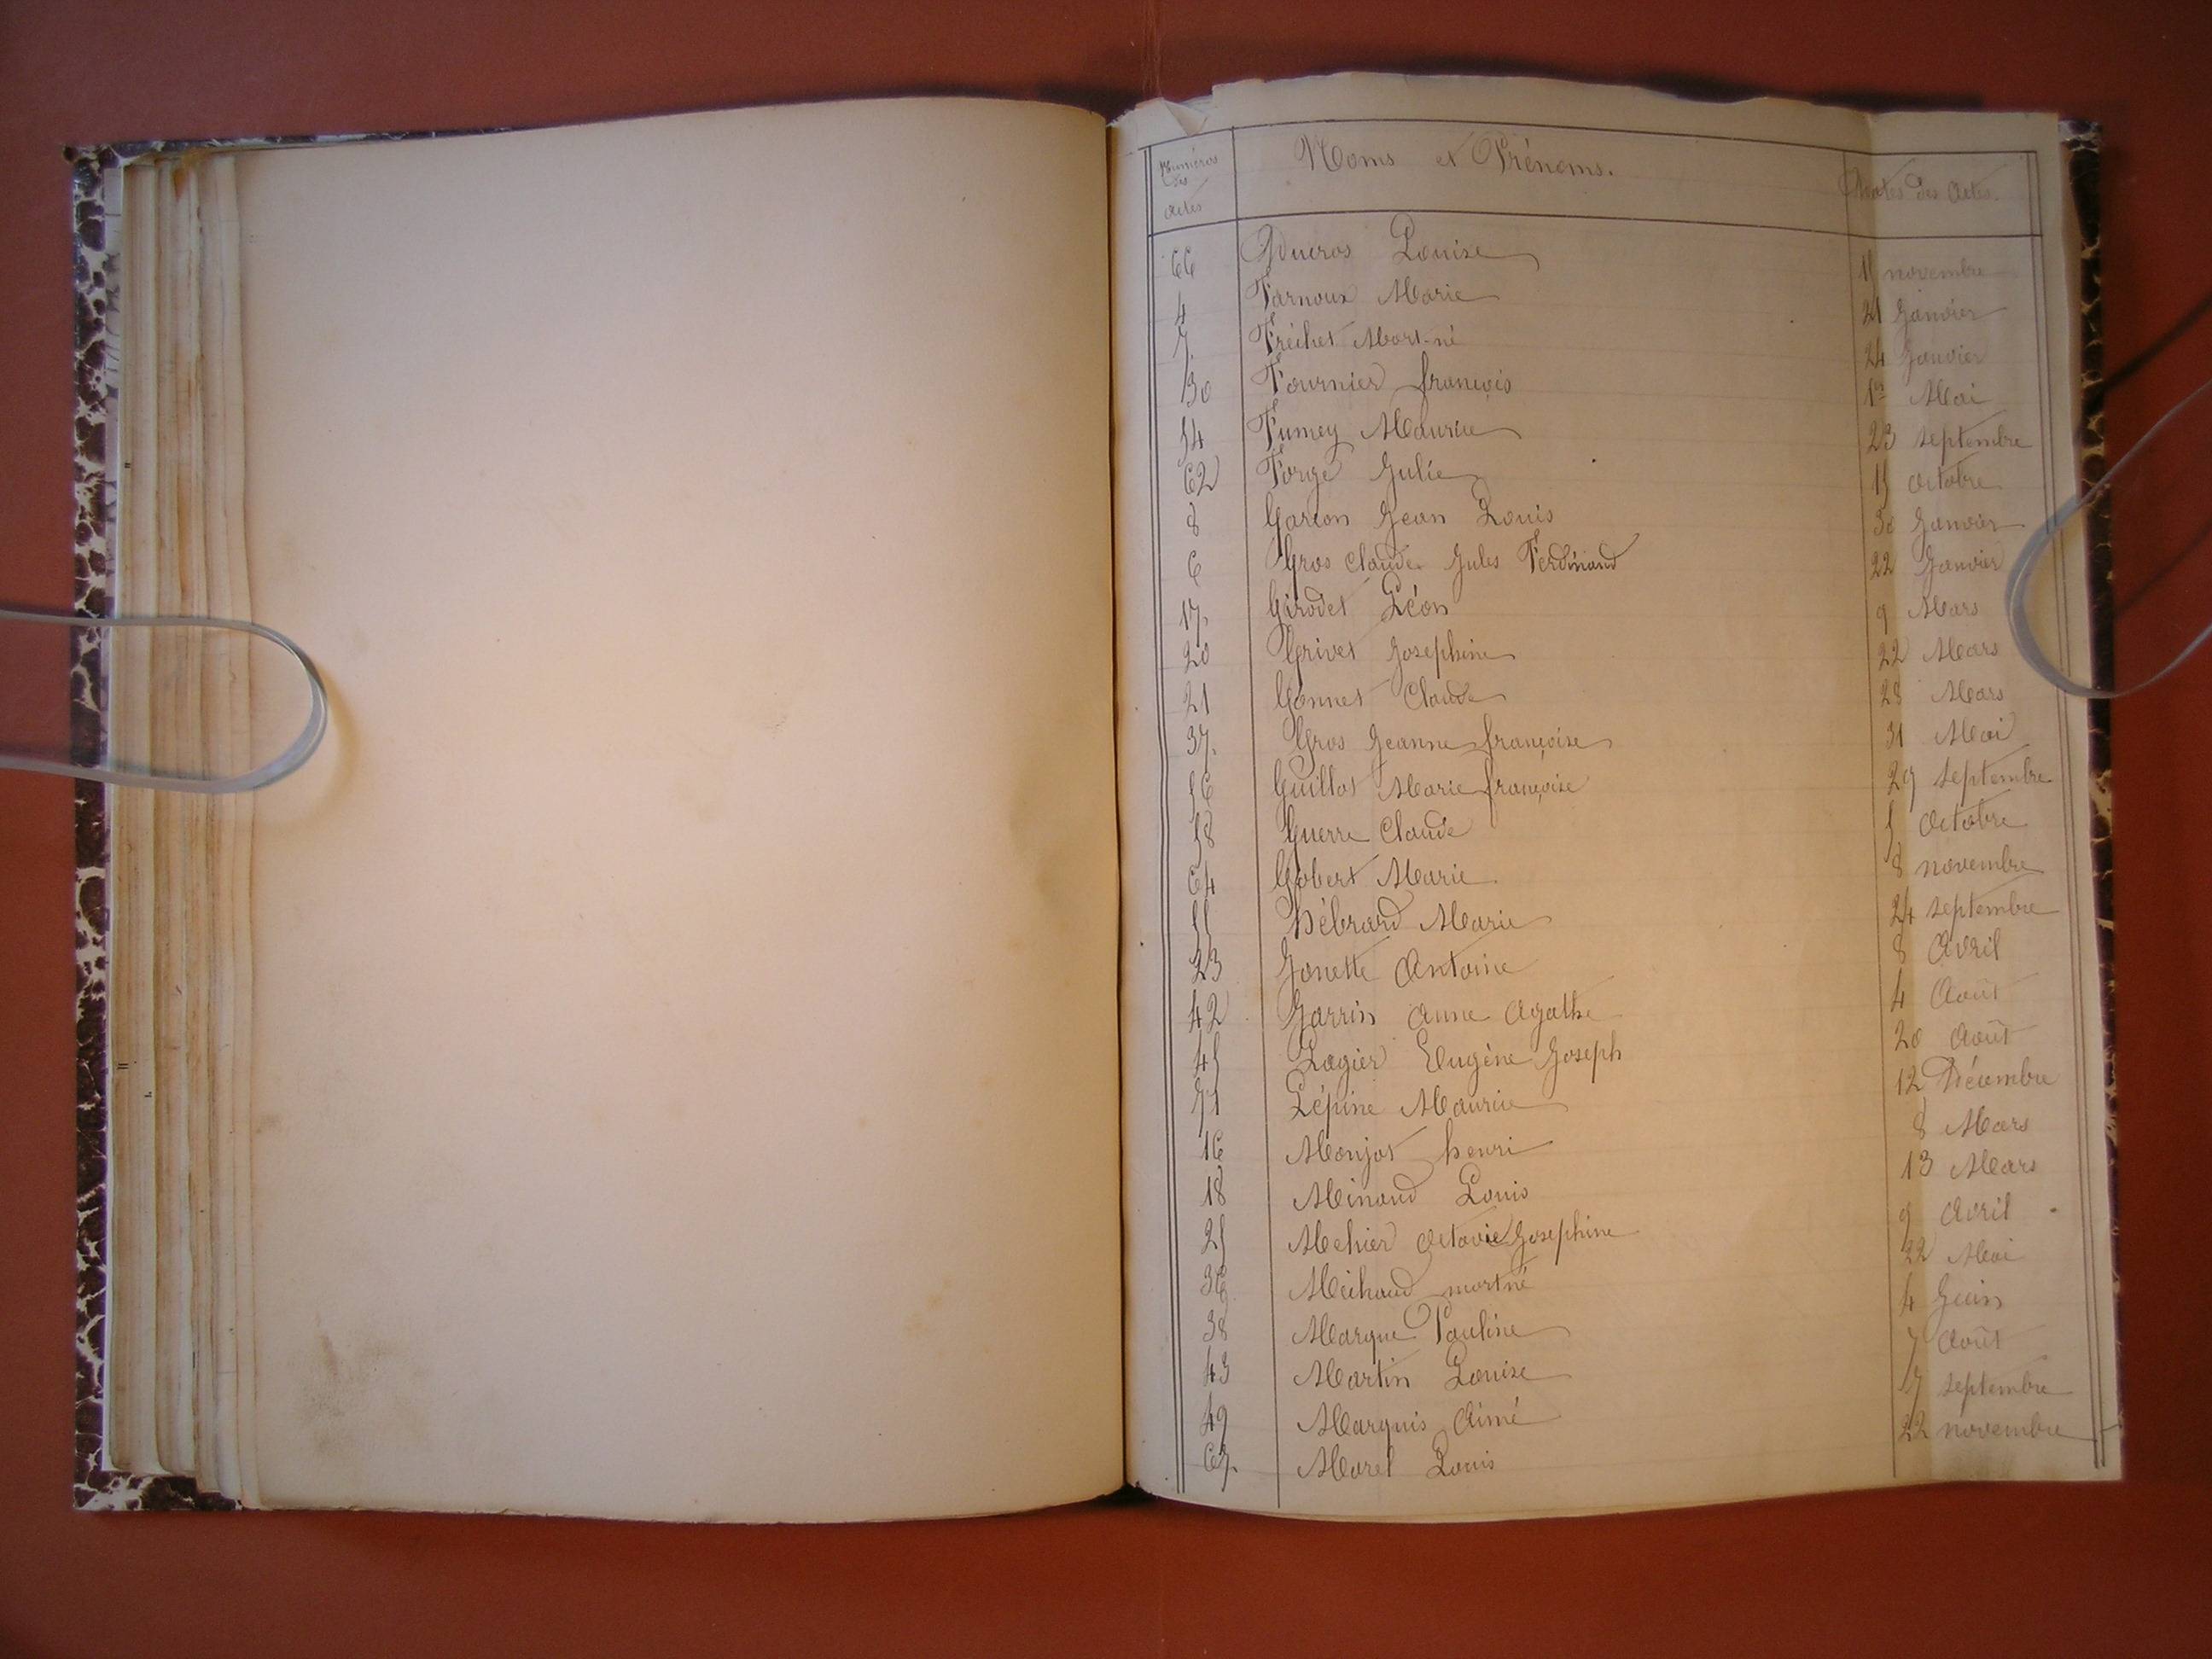 Numéros des actes Noms et Prénoms. Dates des Actes.
66 Ducros Louise 11 novembre
4 Farnoux Marie 21 Janvier
7. Fréchet Mort-né 24 Janvier
30 Fournier françois 1er Mai
54 Fumey Maurice 23 septembre
62 Forge Julie 15 Octobre
8 Garcon Jean Louis 30 Janvier
6 Gros Claude Jules Ferdinand 22 Janvier
17. Girodet Léon 9 Mars
20 Grivet Josephine 22 Mars
21 Gonnet Claude 28 Mars
37. Gros Jeanne françoise 31 Mai
56 Guillot Marie françoise 29 septembre
58 Guerre Claude 5 Octobre
64 Gobert Marie 8 novembre
55 hébrard Marie 24 septembre
23 Antoine 8 Avril
42 Jarrin Anne Agathe 4 Août
45 Lagier Eugène Joseph 20 Août
71 Lépine Maurice 12 Décembre
16 Monjot henri 8 Mars
18 Minaud Louis 13 Mars
25 Mehier Octavie Josephine 9 Avril
36 mort né 22 Mai
38 Marque Pauline 4 Juin
43 Martin Louise 7 Août
49 Marquis Aimé 17 septembre
67. Morel Louis 22 novembre